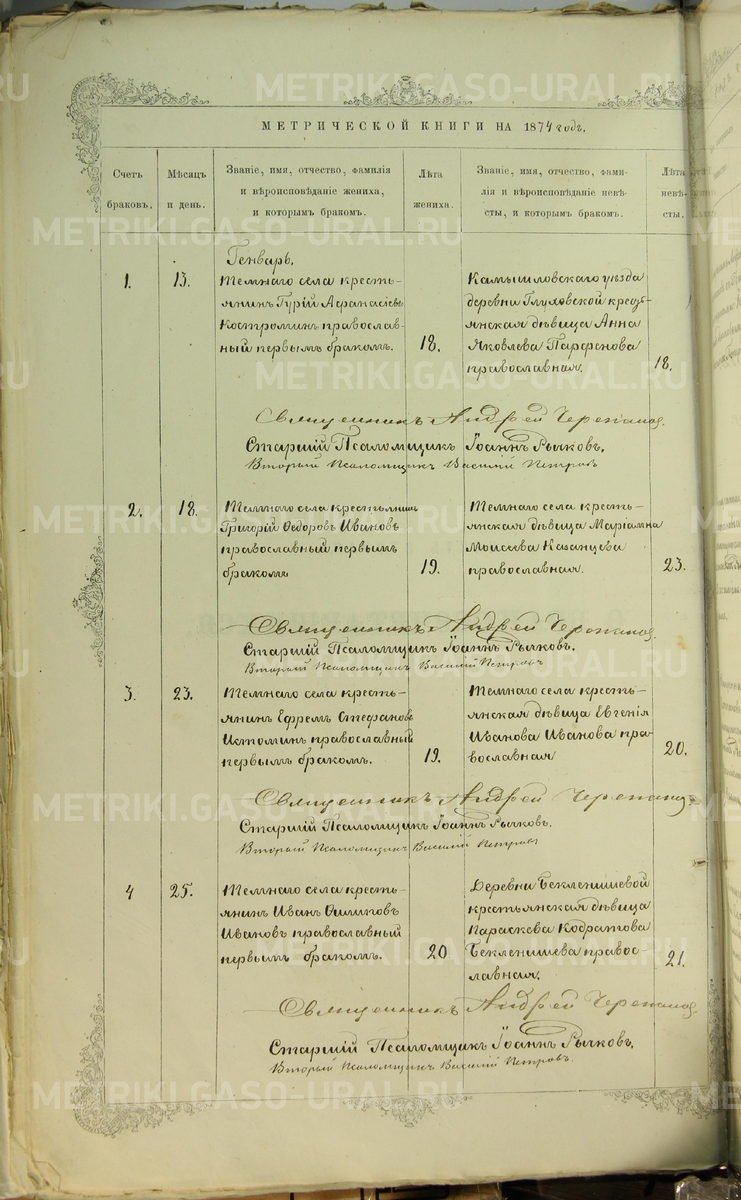 МЕТРИЧЕСКОЙ КНИГИ НА 1874 годъ.
Счетъ браковъ.
Мѣсяцъ и день.
Званіе, имя, отчество, фамилія
и вѣроисповѣданіе жениха,
и которымъ бракомъ.
Лѣта жениха.
Званіе, имя, отчество, фами-
лія и вѣроисповѣданіе невѣ-
сты, и которымъ бракомъ.
Лѣта невѣ-
сты.
Генварь.
1.
13.
Темнаго села кресть-
янинъ Гурій Афанасіевъ
Костроминъ православ-
ный первымъ бракомъ.
18.
Камышловскаго уѣзда
деревни Глуховской кресть-
янская дѣвица Анна
Яковлева Парфенова
православная.
18.
Священникъ Андрей Черепанов.
Старшій Псаломщикъ Іоаннъ Рычковъ.
Вторый Псаломщикъ Василій Петровъ
2.
18.
Темнаго села крестьянинъ
Григорій Ѳедоровъ Ивановъ
православный первымъ
бракомъ
19.
Темнаго села кресть-
янская дѣвица Маріамна
Моисеева Казанцева
православная.
23.
Священникъ Андрей Черепанов.
Старшій Псаломщикъ Іоаннъ Рычковъ.
Вторый Псаломщикъ Василій Петровъ
3.
23.
Темнаго села кресть-
янинъ Ефремъ Стефановъ
Истоминъ православный
первымъ бракомъ.
19.
Темнаго села кресть-
янская дѣвица Евгенія
Иванова Иванова пра-
вославная
20.
Священникъ Андрей Черепанов
Старшій Псаломщикъ Іоаннъ Рычковъ.
Вторый Псаломщикъ Василій Петровъ
4
25.
Темнаго села кресть-
янинъ Иванъ Филиповъ
Ивановъ православный
первымъ бракомъ.
20
Деревни Бекленишевой
крестьянская дѣвица
Параскева Кодратова
Бекленишева правос-
лавная.
21.
Священникъ Андрей Черепанов.
Старшій Псаломщикъ Іоаннъ Рычковъ.
Вторый Псаломщикъ Василій Петровъ.
METRIKI.GASO-URAL.RU